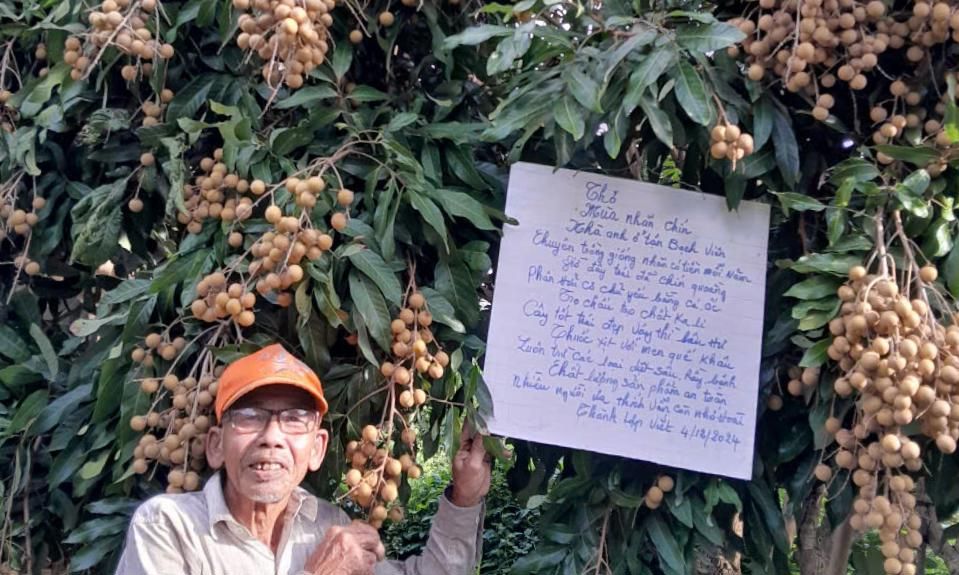 Thơ
Mùa nhãn chín
Nhà anh ở tân Bạch Viên
Chuyên trồng giống nhãn có tiền mỗi năm
Giờ đây trái đã chín quoằng
Phân hữu cơ chủ yếu bằng cá ốc
Tro chấu tạo chất Ka li
Cây tốt trái đẹp vậy thì bấu
Thuốc xịt với men quế khấu
Luôn trừ các loại dịt sâu rầy bệnh
Chất lượng sản phẩm an toàn
Nhiều người ưa thích vẫn còn nhớ
Thành Lập viết 4/12/2024